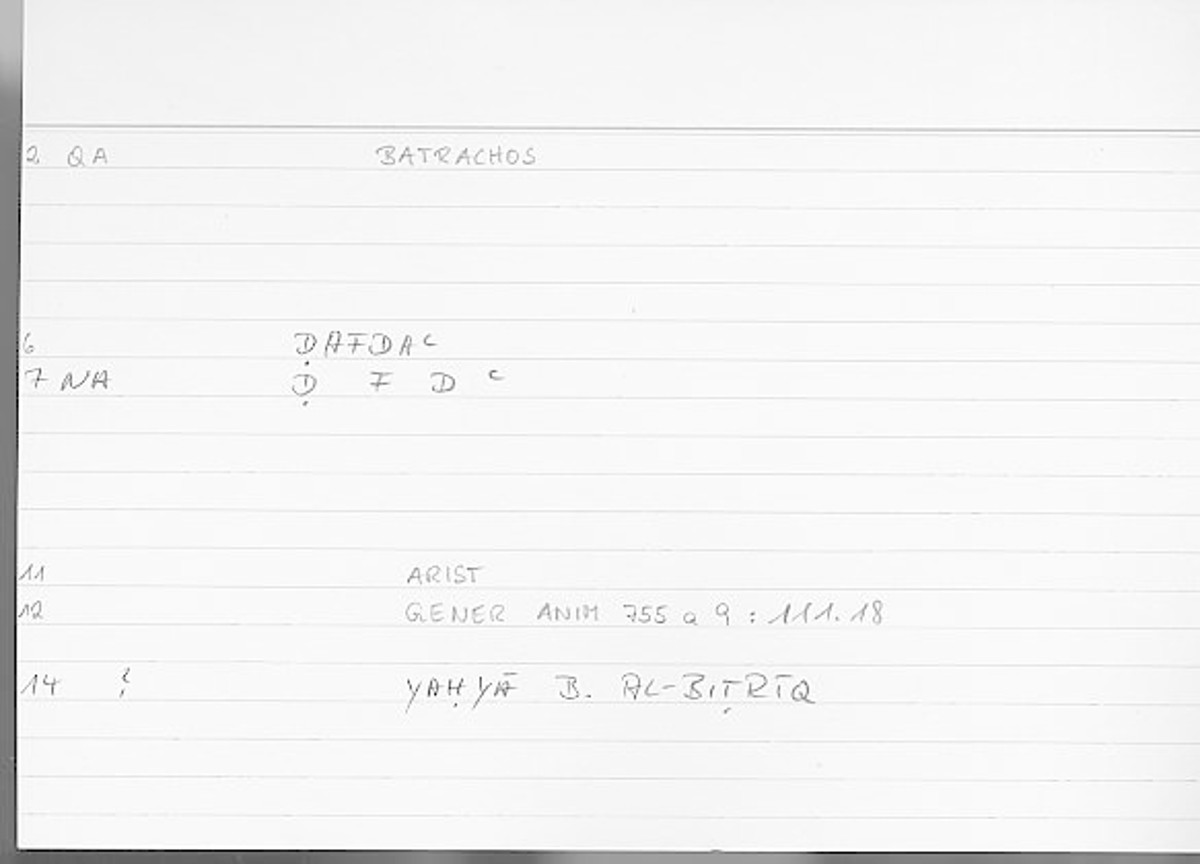 2 QA BATRACHOS
6 ḌAFDAᶜ
7 NA Ḍ F D ᶜ
11 ARIST
12 GENER ANIM 755 a 9 : 111.18
14 ? YAḤYĀ B. AL-BIṬRĪQ